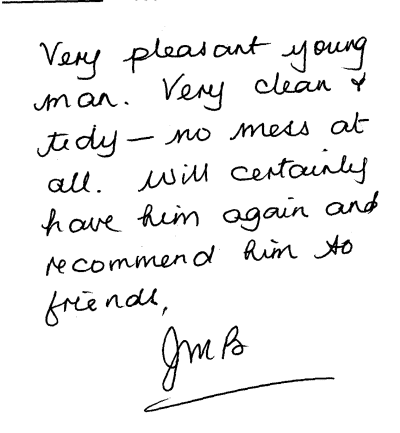 Very pleasant young
man. Very clean &
tidy – no mess at
all. Will certainly
have him again and
recommend him to
friends,
JMB